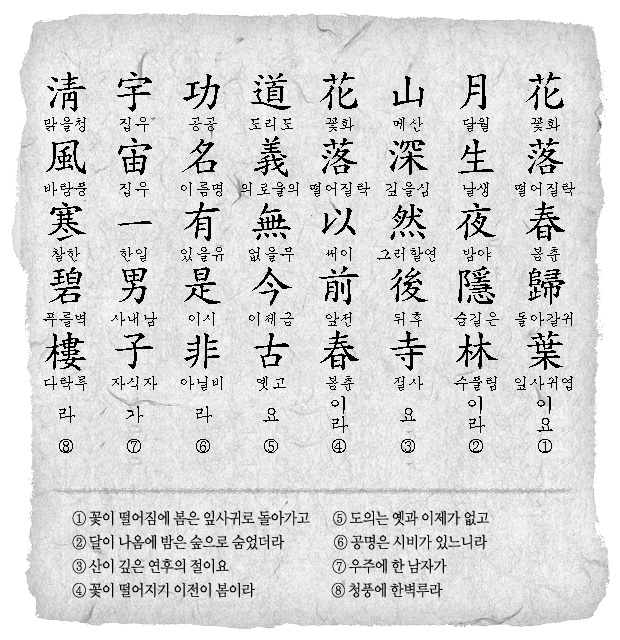 花 꽃화 落 떨어질락 春 봄춘 歸 돌아갈귀 葉 잎사귀엽 이요 ①
月 달월 生 날생 夜 밤야 隱 숨길은 林 수풀림 이라 ②
山 메산 深 깊을심 然 그러할연 後 뒤후 寺 절사 요 ③
花 꽃화 落 떨어질락 以 써이 前 앞전 春 봄춘 이라 ④
道 도리도 義 의로울의 無 없을무 今 이제금 古 옛고 요 ⑤
功 공공 名 이름명 有 있을유 是 이시 非 아닐비 라 ⑥
宇 집우 宙 집우 一 한일 男 사내남 子 자식자 가 ⑦
淸 맑을청 風 바람풍 寒 찰한 碧 푸를벽 樓 다락루 라 ⑧
① 꽃이 떨어짐에 봄은 잎사귀로 돌아가고
② 달이 나옴에 밤은 숲으로 숨었더라
③ 산이 깊은 연후의 절이요
④ 꽃이 떨어지기 이전이 봄이라
⑤ 도의는 옛과 이제가 없고
⑥ 공명은 시비가 있느니라
⑦ 우주에 한 남자가
⑧ 청풍에 한벽루라